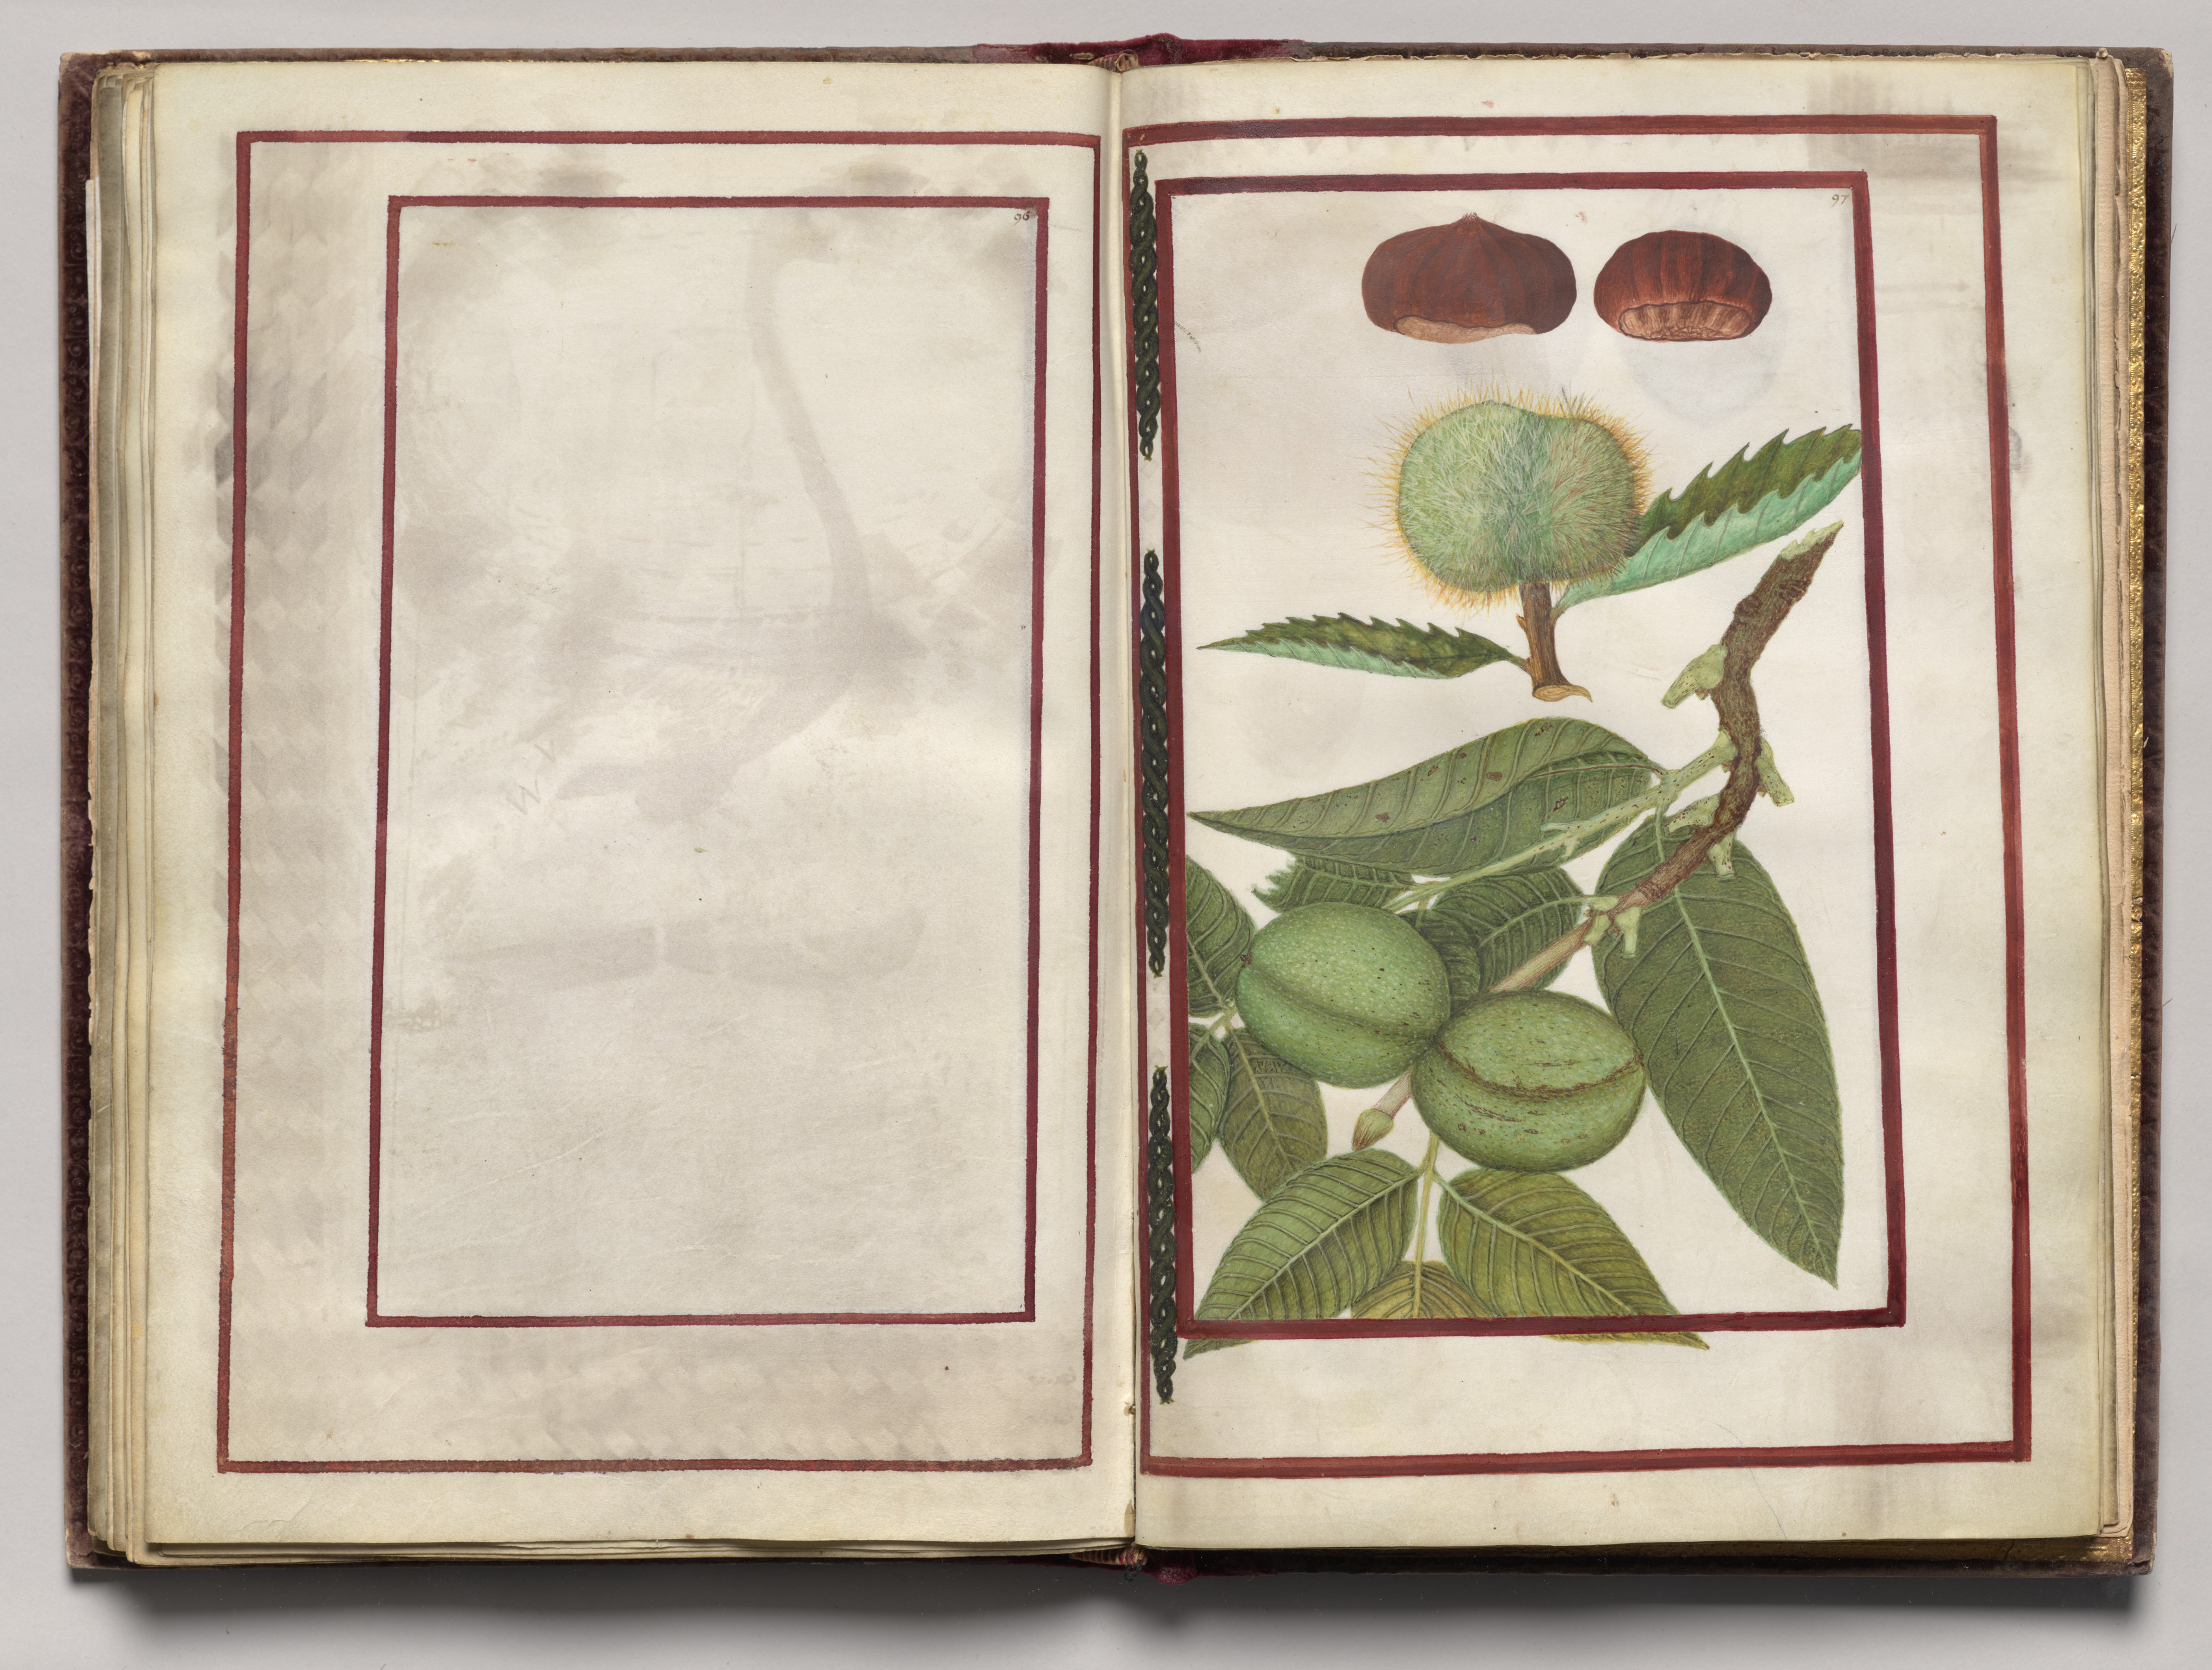 96
97